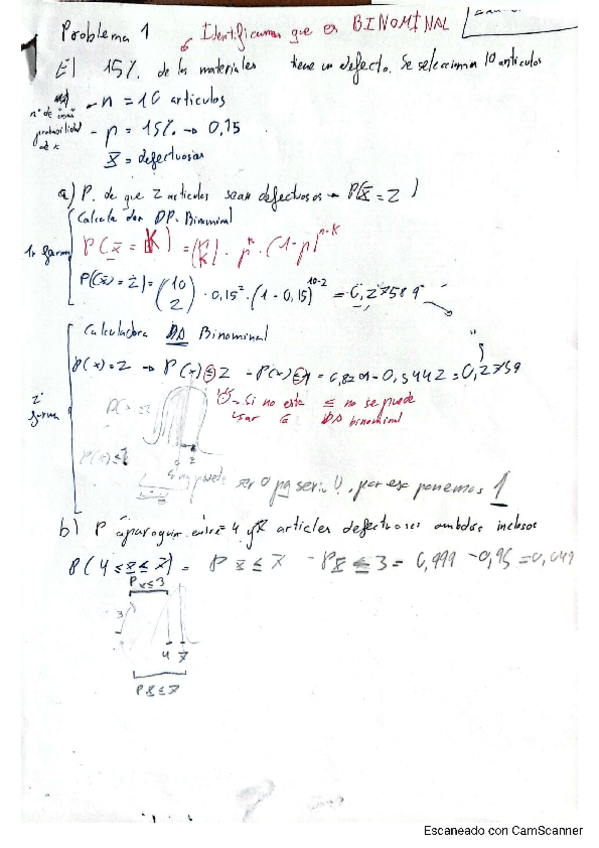 Problema 1 Identificamos que es BINOMINAL
El 15% de los materiales tiene un defecto. Se selecciona 10 articulos
- n = 10 articulos
nº de
probabilidad - p = 15% → 0,15
X = defectuosas
a) P. de que 2 articulos sean defectuosos → P(X = 2)
Calculador DP. Binominal
1ª forma P(X = K) = (n K) · p^K · (1-p)^n-K
P(X = 2) = (10 2) · 0,15² · (1 - 0,15)^10-2 = 0,27589
Calculadora DA Binominal
P(x) = 2 → P(x) ≤ 2 - P(x) ≤ 1 = 0,8201 - 0,5442 = 0,2759
2ª forma
Si no esta ≤ no se puede
usar DA binominal
P(x) ≤ 1
ser 0 pq seria 0, por eso ponemos 1
b) P entre 4 y 7 articles defectuosos ambos inclosos
P(4 ≤ X ≤ 7) = P X ≤ 7 - P X ≤ 3 = 0,999 - 0,95 = 0,049
P X ≤ 3
3
4 7
P X ≤ 7
Escaneado con CamScanner